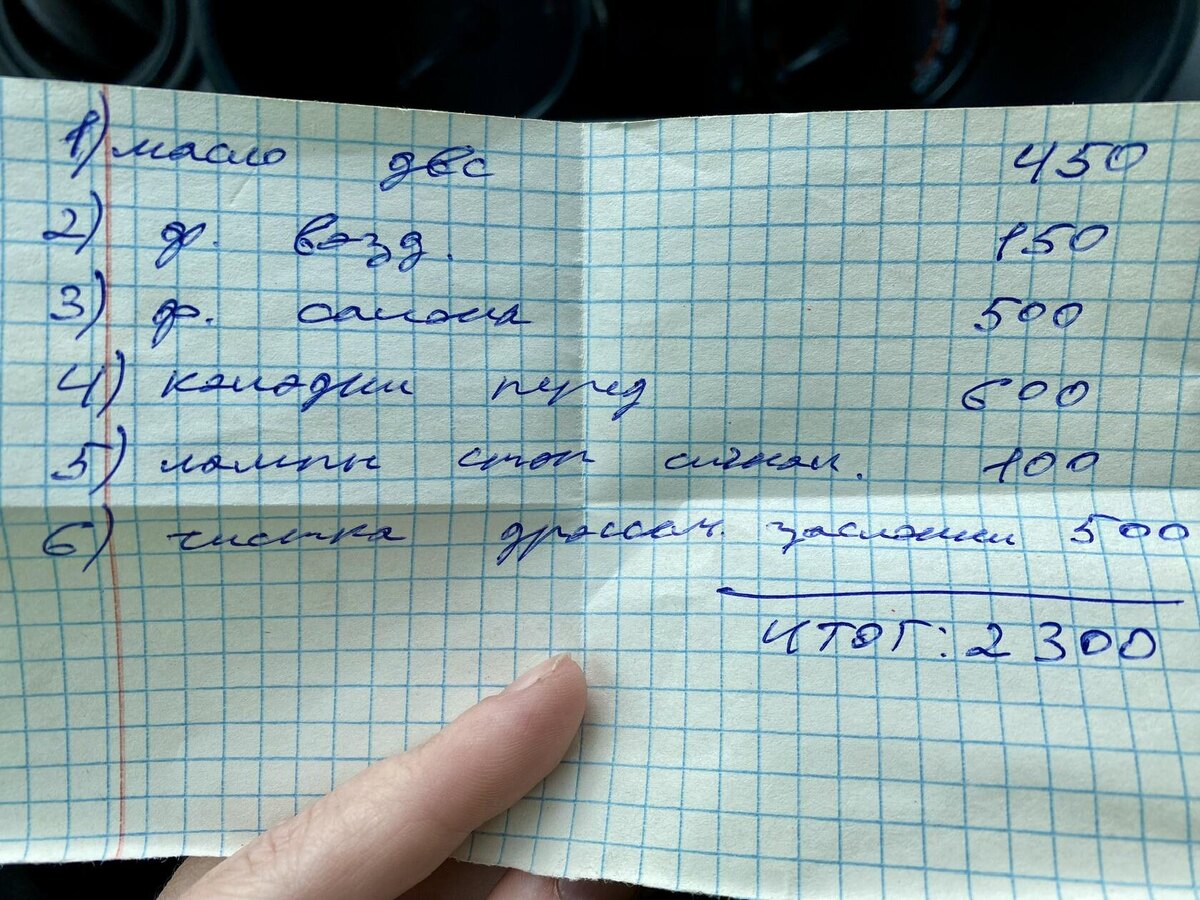 1) масло двс 450
2) ф. возд. 150
3) ф. салона 500
4) колодки перед 600
5) лампы стоп сигнал. 100
6) чистка дроссел. заслонки 500
ИТОГ: 2300